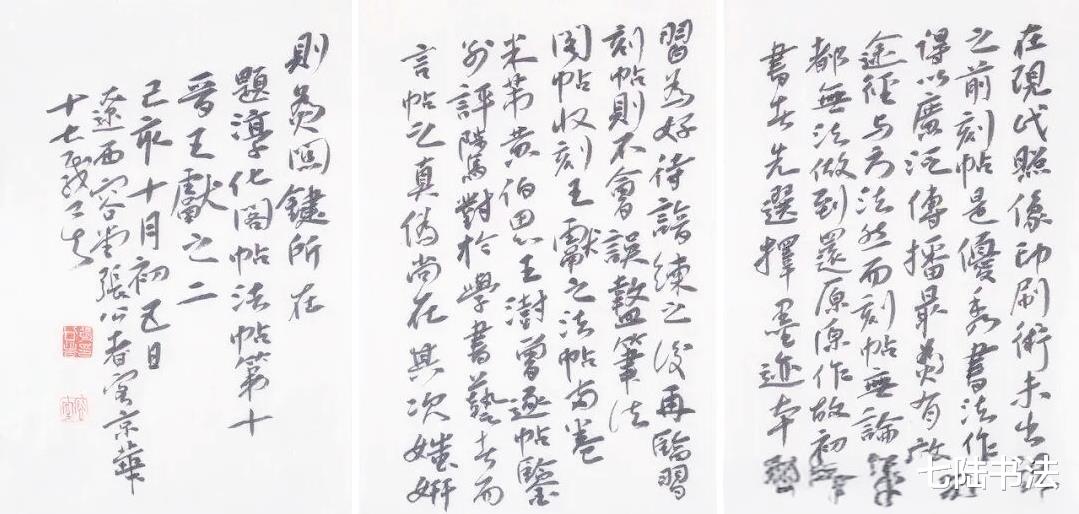 在現代照像印刷術未出現
之前刻帖是優秀書法作品
得以廣泛傳播最為有效
途徑与方法然而刻帖無論
都無法做到還原原作故初
書者先選擇墨迹本
習為好待諳練之後再臨習
刻帖則不會誤盭筆法
閣帖收刻王獻之法帖兩卷
米芾黃伯思王澍曾逐帖鑒
別評隲對於學書藝者而
言帖之真偽尚在其次媸妍
則為關鍵所在
題淳化閣帖法帖第十
晉王獻之二
己亥十月初五日
遼西容堂張公者客京華
十七
七陆书法